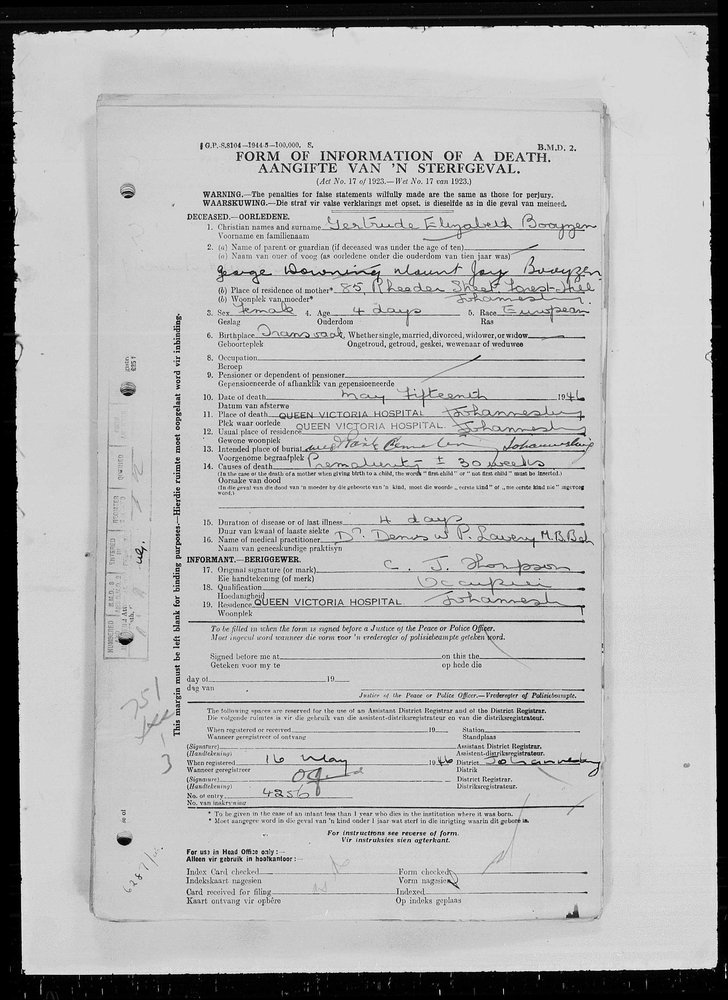 G.P.-S.8104—1944-5—100,000. S.
B.M.D. 2.
FORM OF INFORMATION OF A DEATH.
AANGIFTE VAN 'N STERFGEVAL.
(Act No. 17 of 1923.—Wet No. 17 van 1923.)
WARNING.—The penalties for false statements wilfully made are the same as those for perjury.
WAARSKUWING.—Die straf vir valse verklarings met opset, is dieselfde as in die geval van meineed.
DECEASED.—OORLEDENE.
1. Christian names and surname Gertrude Elizabeth Booyzen
Voorname en familienaam
2. (a) Name of parent or guardian (if deceased was under the age of ten)
(a) Naam van ouer of voog (as oorledene onder die ouderdom van tien jaar was)
George Downing Mount Joy Booyzen
(b) Place of residence of mother* 85 Rheeder Street Forest Hill
(b) Woonplek van moeder* Johannesburg
3. Sex Female 4. Age 4 days 5. Race European
Geslag Ouderdom Ras
6. Birthplace Transvaal Whether single, married, divorced, widower, or widow
Geboorteplek Ongetroud, getroud, geskei, wewenaar of weduwee
8. Occupation
Beroep
9. Pensioner or dependent of pensioner
Gepensioeneerde of afhanklik van gepensioeneerde
10. Date of death May Fifteenth 1946
Datum van afsterwe
11. Place of death QUEEN VICTORIA HOSPITAL Johannesburg
Plek waar oorlede
12. Usual place of residence QUEEN VICTORIA HOSPITAL. Johannesburg
Gewone woonplek
13. Intended place of burial Johannesburg
Voorgenome begraafplek
14. Causes of death Prematurity ± 30 weeks
(In the case or the death of a mother when giving birth to a child, the words "first child" or "not first child" must be inserted.)
Oorsake van dood
(In die geval van die dood van 'n moeder by die geboorte van 'n kind, moet die woorde „eerste kind" of „nie eerste kind nie" ingevoeg word.)
15. Duration of disease or of last illness 4 days
Duur van kwaal of laaste siekte
16. Name of medical practitioner Dr. Denis W P. Lavery M.B.Bch
Naam van geneeskundige praktisyn
INFORMANT.—BERIGGEWER.
17. Original signature (or mark) C. J. Thompson
Eie handtekening (of merk)
18. Qualification Occupier
Hoedanigheid
19. Residence QUEEN VICTORIA HOSPITAL Johannesburg
Woonplek
To be filled in when the form is signed before a Justice of the Peace or Police Officer.
Moet ingevul word wanneer die vorm voor 'n vrederegter of polisiebeampte geteken word.
Signed before me at on this the
Geteken voor my te op hede die
day of 19
dag van
Justice of the Peace or Police Officer.—Vrederegter of Polisiebeampte.
The following spaces are reserved for the use of an Assistant District Registrar and of the District Registrar.
Die volgende ruimtes is vir die gebruik van die assistent-distriksregistrateur en van die distriksregistrateur.
When registered or received 19 Station
Wanneer geregistreer of ontvang Standplaas
(Signature) Assistant District Registrar.
(Handtekening) Assistent-distriksregistrateur.
When registered 16 May 1946 District Johannesburg
Wanneer geregistreer Distrik
(Signature) District Registrar.
(Handtekening) Distriksregistrateur.
No. of entry 4256
No. van inskrywing
* To be given in the case of an infant less than 1 year who dies in the institution where it was born.
* Moet aangegee word in die geval van 'n kind onder 1 jaar wat sterf in die inrigting waarin dit gebore is.
For instructions see reverse of form.
Vir instruksies sien agterkant.
For use in Head Office only:—
Alleen vir gebruik in hoofkantoor:—
Index Card checked Form checked
Indekskaart nagesien Vorm nagesien
Card received for filing Indexed
Kaart ontvang vir opbêre Op indeks geplaas
This margin must be left blank for binding purposes.—Hierdie ruimte moet oopgelaat word vir inbinding.
751
3